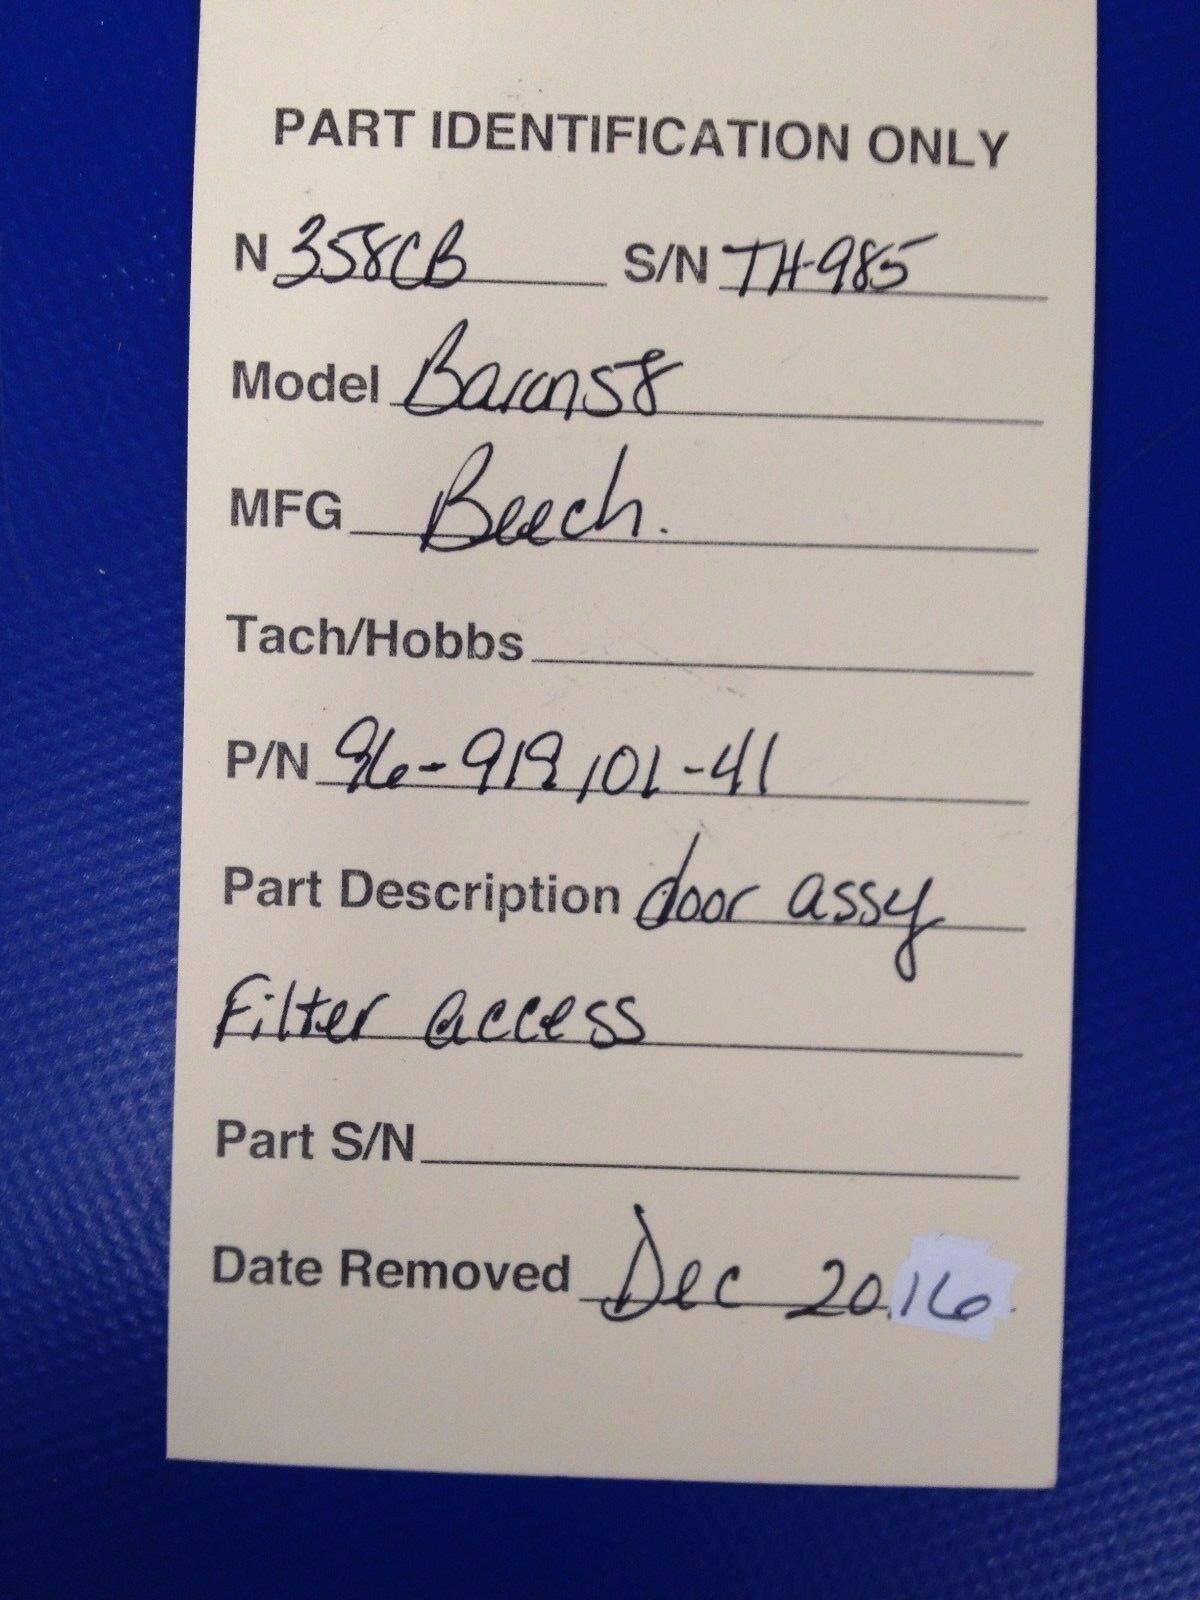 PART IDENTIFICATION ONLY
N 358CB S/N TH-985
Model Baron 58
MFG Beech.
Tach/Hobbs
P/N 96-919101-41
Part Description door assy
Filter access
Part S/N
Date Removed Dec 2016